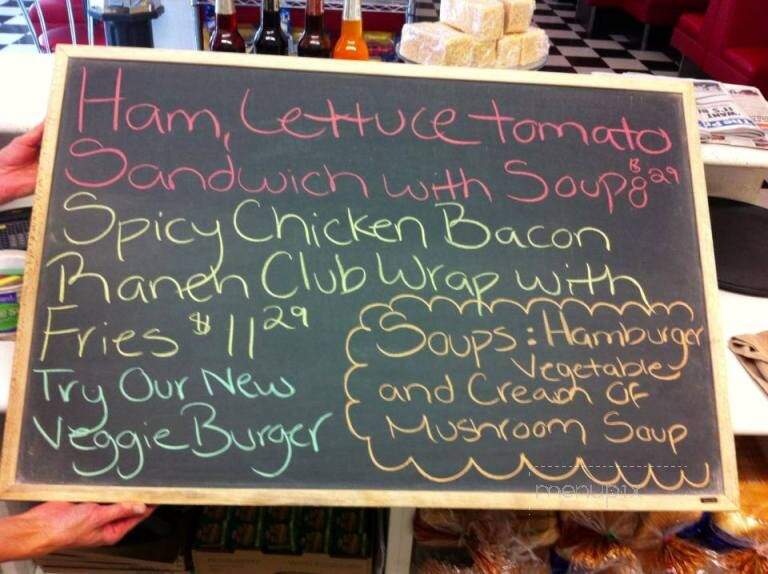 Ham, Lettuce tomato
Sandwich with Soup $8.29
Spicy Chicken Bacon
Ranch Club Wrap with
Fries $11.29
Try Our New
Veggie Burger
Soups: Hamburger
Vegetable
and Cream OF
Mushroom Soup
menupix